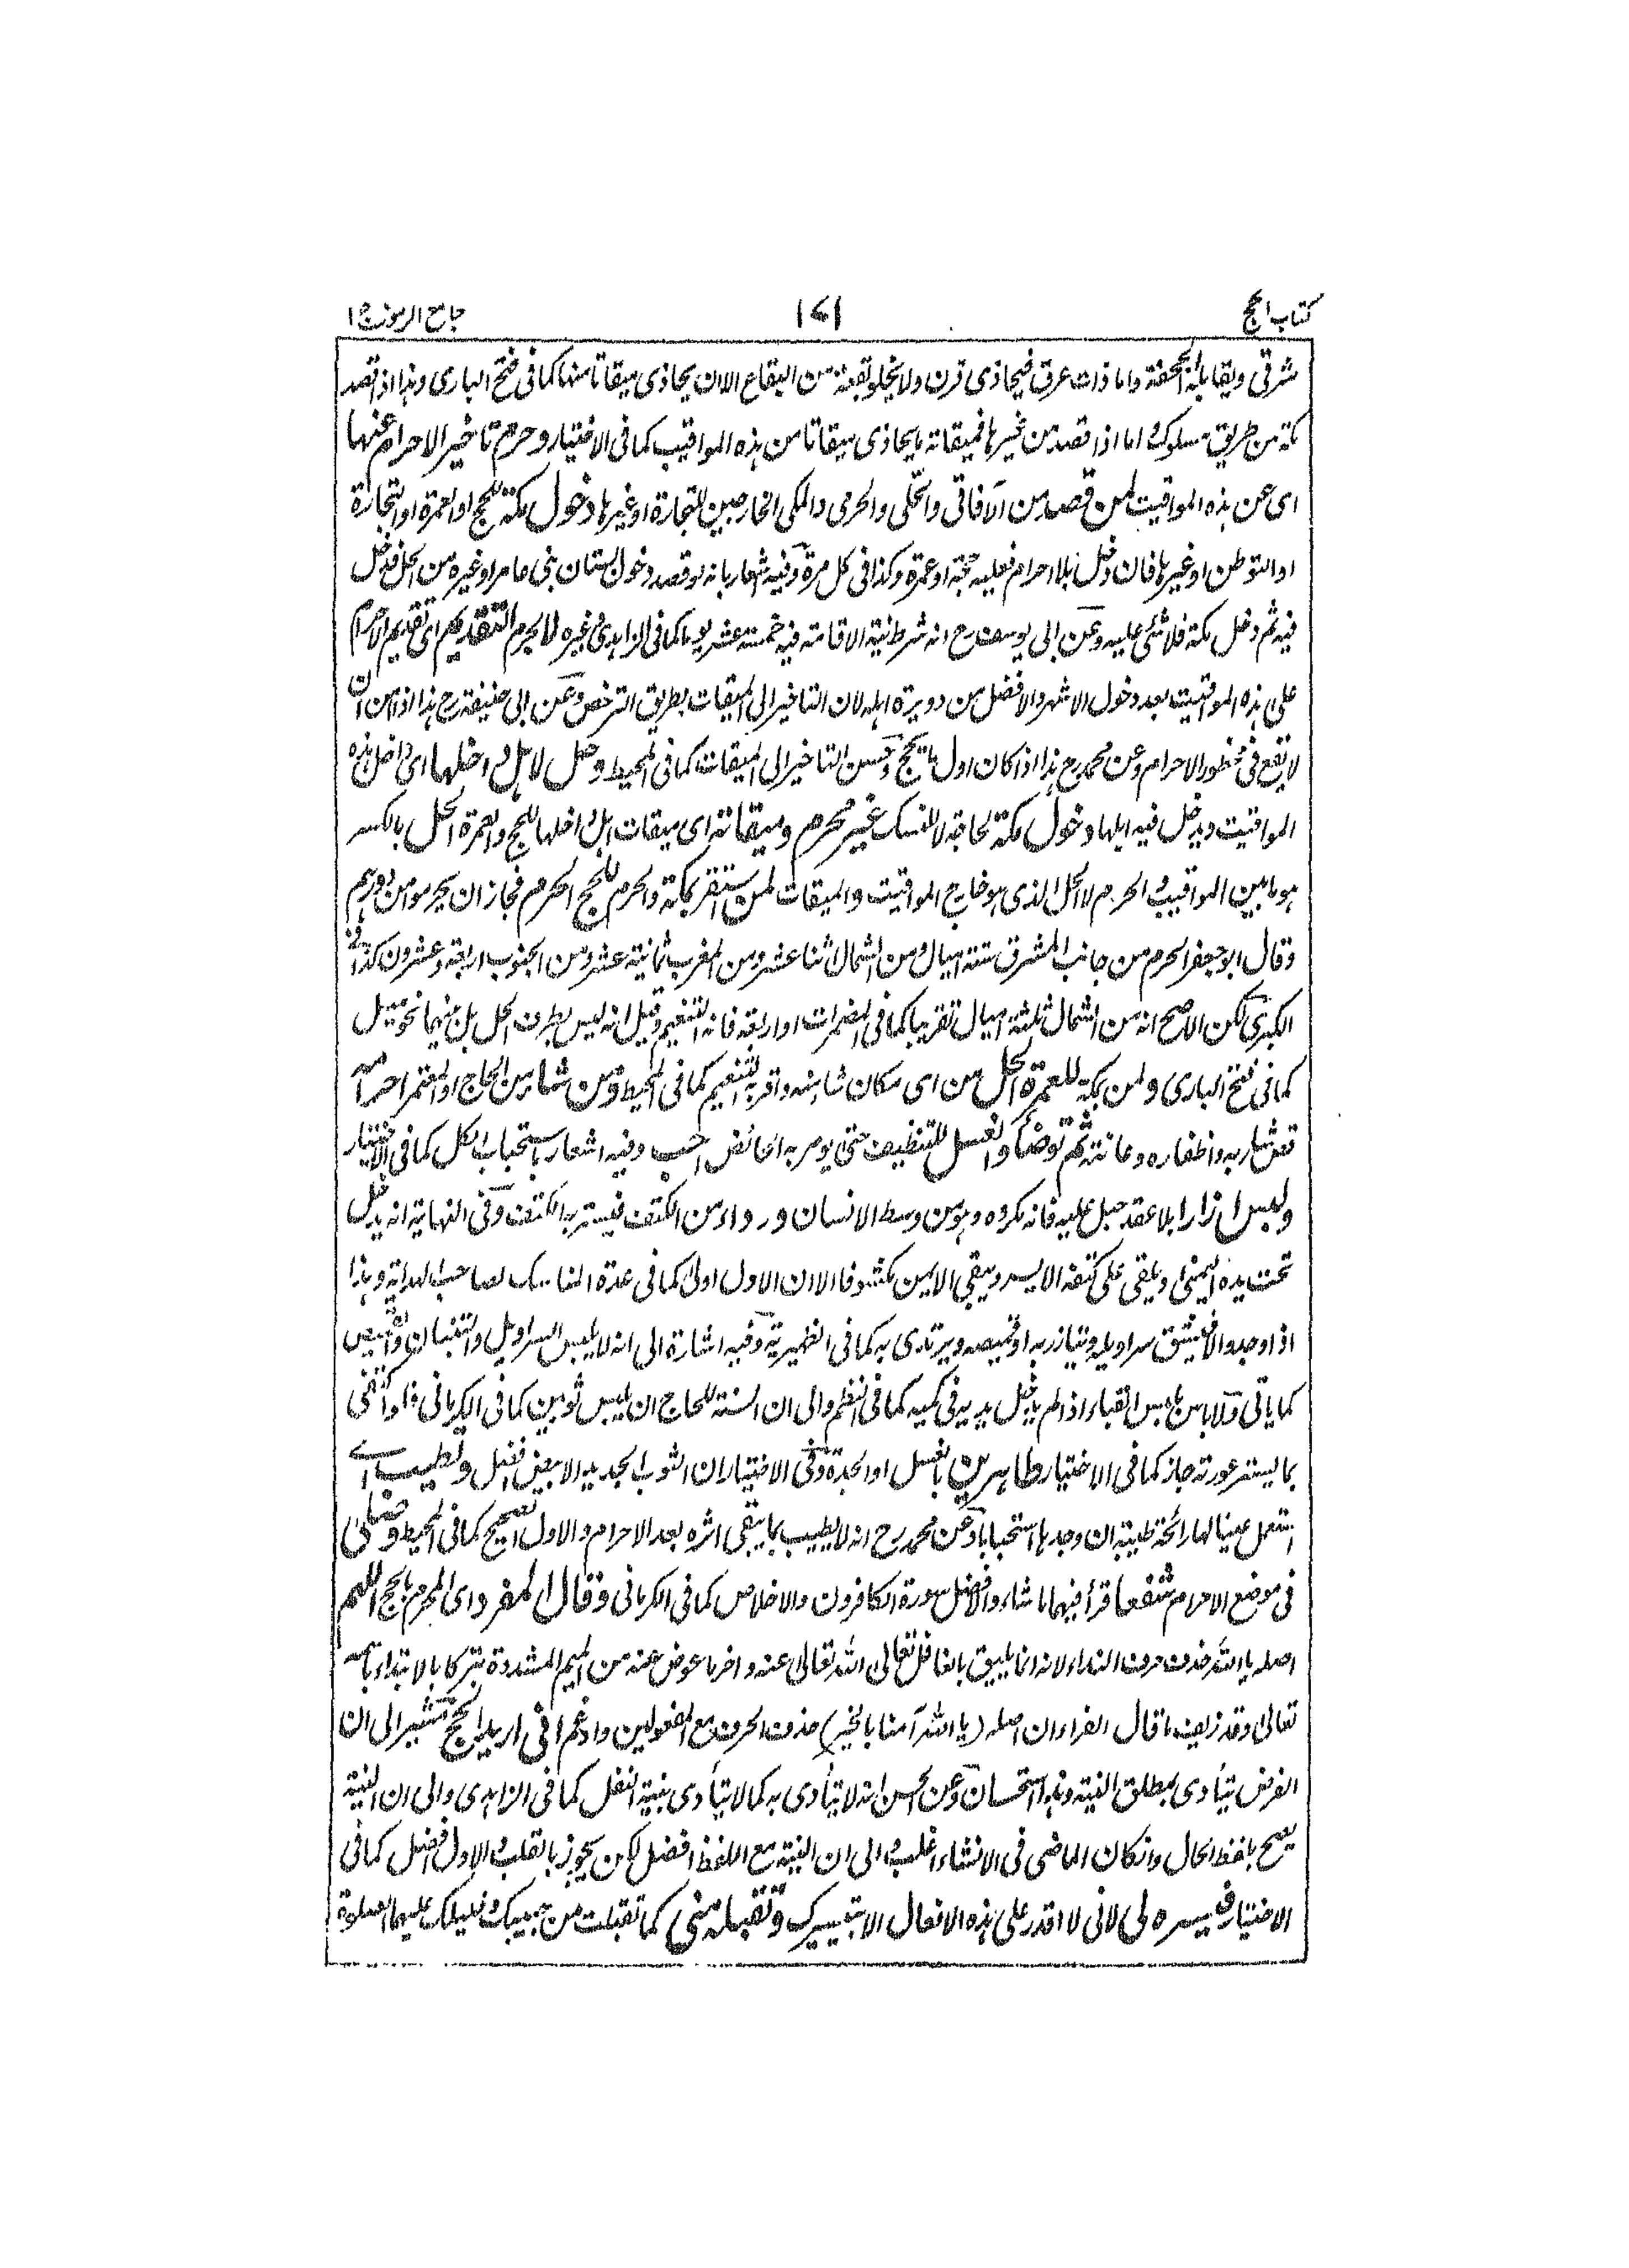 كتاب الحج
١٧١
جامع الرموز ج ١
شرقى ويقابله الجحفة واما ذات عرق فيحاذى قرن ولا يخلو بقعة من البقاع الا ان يحاذى ميقاتا منها كما فى فتح البارى وهذا اذا قصد
مكة من طريق مسلوك واما اذا قصد من غيرها فميقاته ما يحاذى ميقاتا من هذه المواقيت كما فى الاختيار وحرم تاخير الاحرام عنها
اى عن هذه المواقيت لمن قصد من الآفاقى والحلى والحرمى والمكى الخارجين للتجارة او غيرها دخول مكة للحج او العمرة او التجارة
او التوطن او غيرها فان دخل بلا احرام فعليه حجة او عمرة وكذا فى كل مرة وفيه اشعار بانه لو قصد دخول بستان بنى عامر او غيره من الحل فدخل
فيه ثم دخل مكة فلا شئ عليه وعن ابى يوسف رح انه شرط نية الاقامة فيه خمسة عشر يوما كما فى الزاهدى وغيره لا يحرم التقديم اى تقديم الاحرام
على هذه المواقيت بعد دخول الاشهر والافضل من دويرة اهله لان التاخير الى الميقات بطريق الترخص وعن ابى حنيفة رح هذا اذا امن ان
لا يقع فى محظور الاحرام وعن محمد رح هذا اذا كان اول ما يحج وحسن التاخير الى الميقات كما فى المحيط وحل لاهل داخلها اى داخل هذه
المواقيت ويدخل فيه اهلها دخول مكة لحاجة لا للنسك غير محرم وميقاته اى ميقات اهل داخلها للحج والعمرة الحل بالكسر
هو ما بين المواقيت والحرم لا الحل الذى هو خارج المواقيت والميقات لمن استقر بمكة والحرم للحج الحرم فجاز ان يحرموا من دورهم
وقال ابو جعفر الحرم من جانب المشرق ستة اميال ومن الشمال اثنا عشر ومن المغرب ثمانية عشر ومن الجنوب اربعة وعشرون كذا فى
الكبرى لكن الاصح انه من الشمال ثلثة اميال تقريبا كما فى المضمرات او اربعة فانه التنعيم وقيل انه ليس بطرف الحل بل بينهما نحو ميل
كما فى فتح البارى ولمن بمكة للعمرة الحل من اى مكان شاء منه واقربه التنعيم كما فى المحيط ومن شاء من الحاج او المعتمر احرامه
قص شاربه واظفاره وعانته ثم توضأ والغسل للتنظيف حتى يومر به الحائض احب وفيه اشعار باستحباب الكل كما فى الاختيار
ولبس ازارا بلا عقد حبل عليه فانه مكروه وهو من وسط الانسان ورداء من الكتف فيستر به الكتف وفى النهاية انه يدخل
تحت يده اليمنى ويلقى على كتفه الايسر ويبقى الايمن مكشوفا الا ان الاول اولى كما فى عدة المناسك لصاحب الهداية وهذا
اذا وجد والا فيشق سراويله ويتازر به او قميصه ويرتدى به كما فى الظهيرية وفيه اشارة الى انه لا يلبس السراويل والتبان والقميص
كما ياتى ولا باس بلبس القباء اذا لم يدخل يديه فى كميه كما فى النظم والى ان السنة للحاج ان يلبس ثوبين كما فى الكرمانى فلو اكتفى
بما يستر عورته جاز كما فى الاختيار طاهرين بالغسل او الجدة وفى الاختيار ان الثوب الجديد الابيض افضل وتطيب اى
استعمل عينا لها رائحة طيبة ان وجدها استحبابا وعن محمد رح انه لا يطيب بما يبقى اثره بعد الاحرام والاول الصحيح كما فى المحيط وصلى
فى موضع الاحرام شفعا قرأ فيهما ما شاء والافضل سورة الكافرون والاخلاص كما فى الكرمانى وقال المفرد اى المحرم بالحج اللهم
اصله يا الله حذف حرف النداء لانه انما يليق بالغافل تعالى الله تعالى عنه واخر ما عوض عنه من الميم المشددة تبركا بالابتداء باسمه
تعالى وقد زيف ما قال الفراء ان اصله (يا الله آمنا بالخير) حذف الحرف مع المفعولين وادغم انى اريد الحج مشير الى ان
الفرض يتأدى بمطلق النية وهذا استحسان وعن الحسن انه لا يتأدى به كما لا يتأدى بنية النفل كما فى الزاهدى والى ان النية
يصح بلفظ الحال وان كان الماضى فى الانشاء اغلب والى ان النية مع اللفظ افضل لكن يجوز بالقلب والاول افضل كما فى
الاختيار فيسره لى لانى لا اقدر على هذه الافعال الا بتيسيرك وتقبله منى كما تقبلت من حبيبك وخليلك عليهما الصلوة